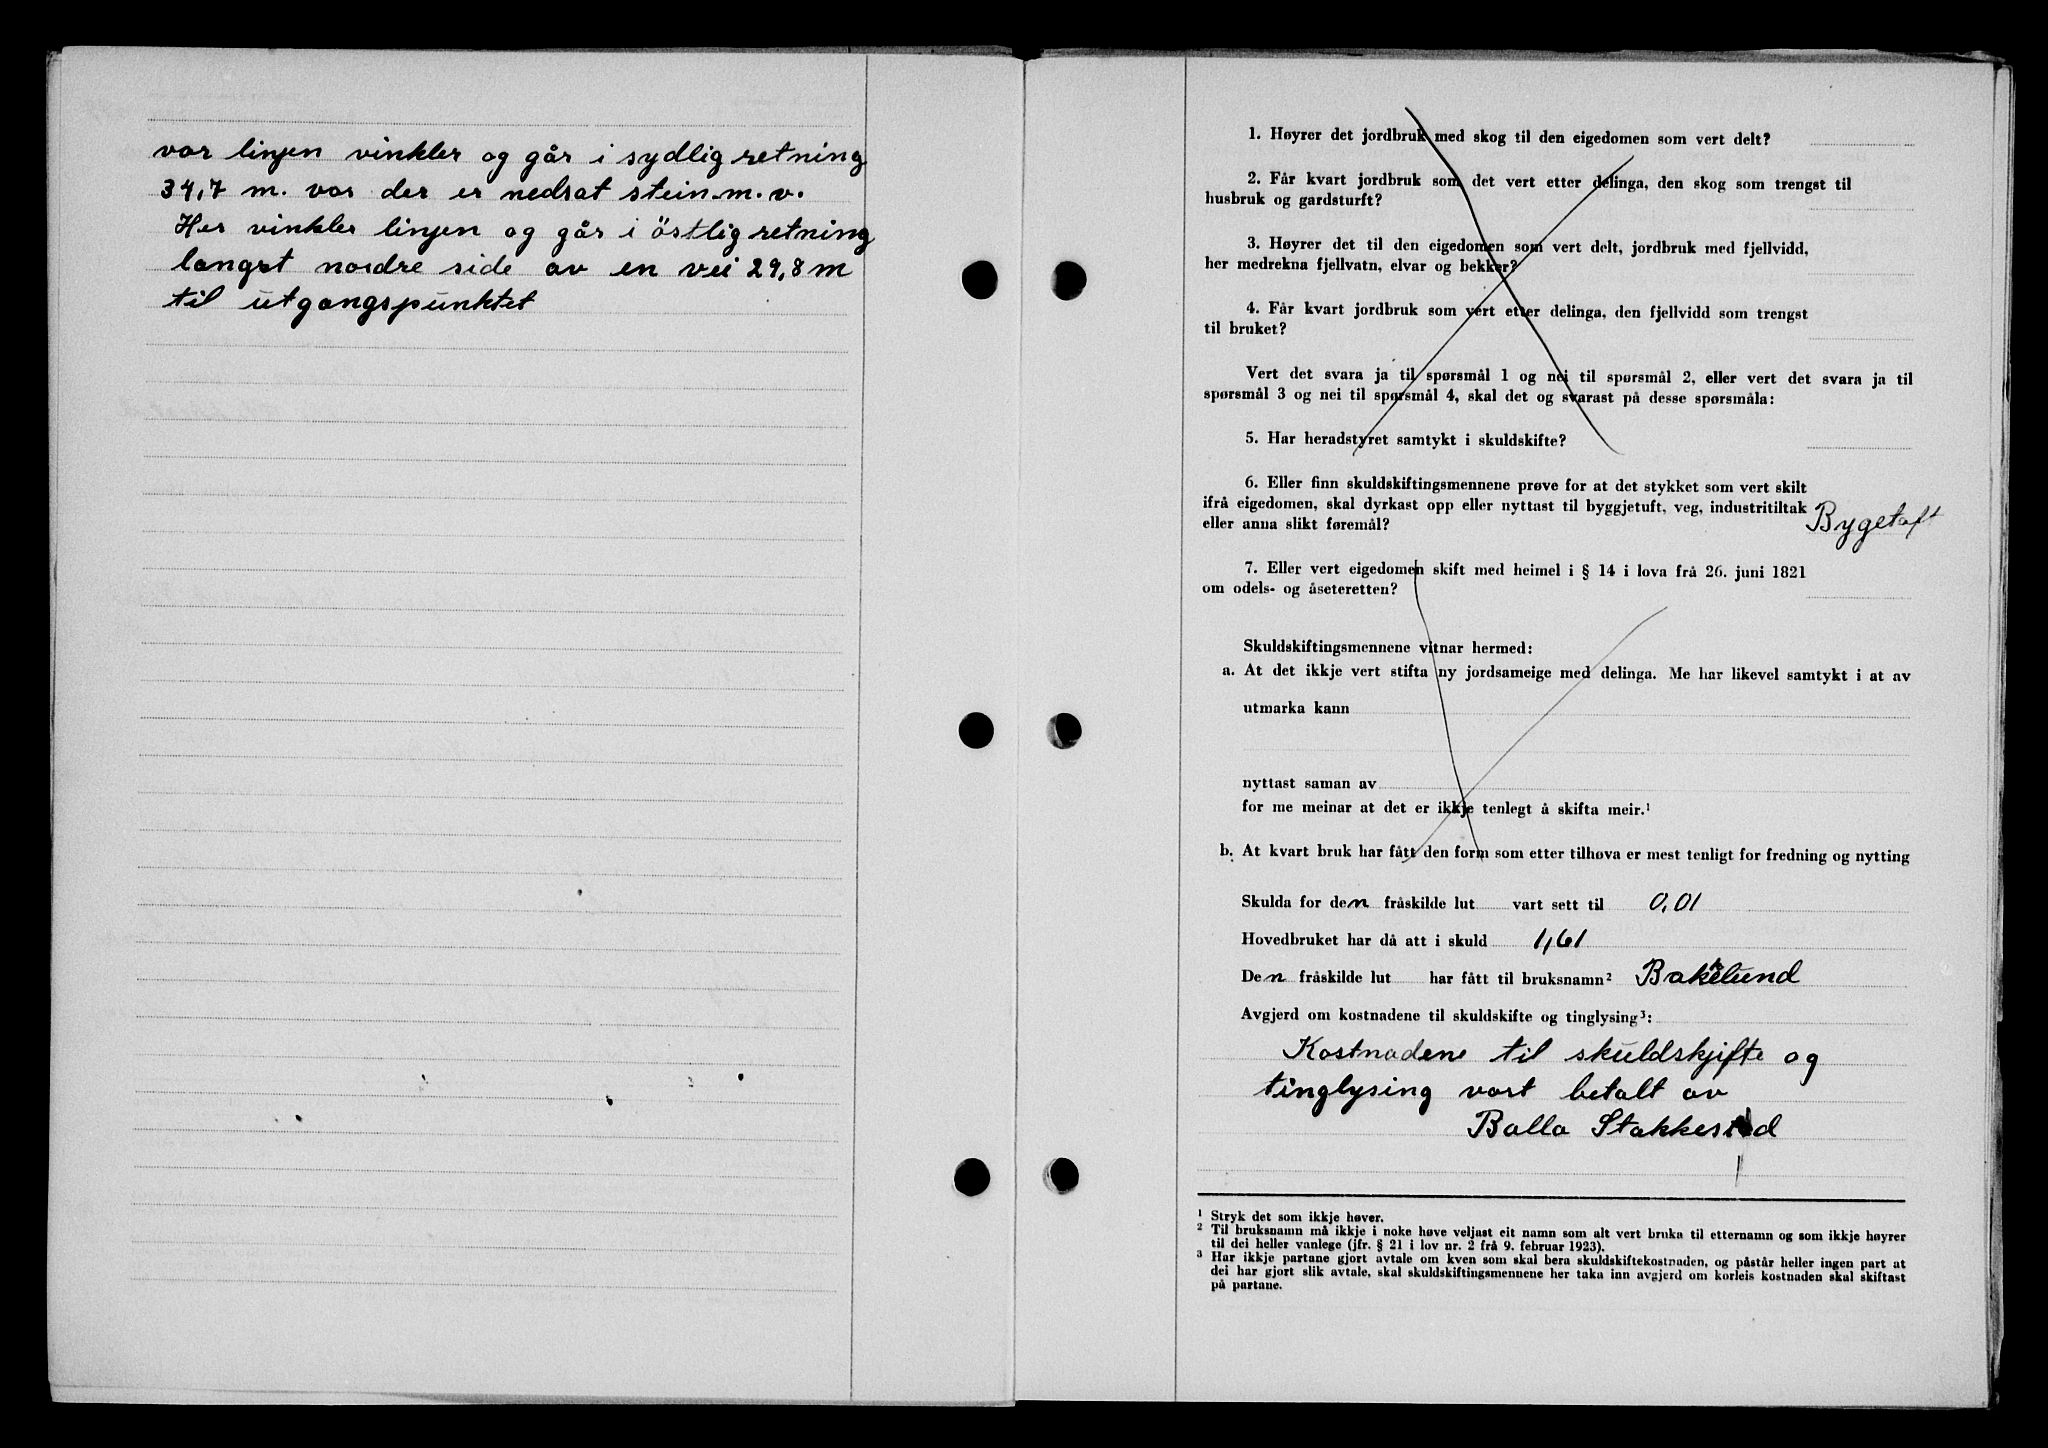 vor linjen vinkler og går i sydlig retning
34,7 m. vor der er nedsat stein m. v.
Her vinkler linjen og går i östlig retning
langst nordre side av en vei 29,8 m
til utgangspunktet
1. Høyrer det jordbruk med skog til den eigedomen som vert delt?
2. Får kvart jordbruk som det vert etter delinga, den skog som trengst til
husbruk og gardsturft?
3. Høyrer det til den eigedomen som vert delt, jordbruk med fjellvidd,
her medrekna fjellvatn, elvar og bekker?
4. Får kvart jordbruk som vert etter delinga, den fjellvidd som trengst
til bruket?
Vert det svara ja til spørsmål 1 og nei til spørsmål 2, eller vert det svara ja til
spørsmål 3 og nei til spørsmål 4, skal det og svarast på desse spørsmåla:
5. Har heradstyret samtykt i skuldskifte?
6. Eller finn skuldskiftingsmennene prøve for at det stykket som vert skilt
ifrå eigedomen, skal dyrkast opp eller nyttast til byggjetuft, veg, industritiltak
eller anna slikt føremål? Bygetoft
7. Eller vert eigedomen skift med heimel i § 14 i lova frå 26. juni 1821
om odels- og åseteretten?
Skuldskiftingsmennene vitnar hermed:
a. At det ikkje vert stifta ny jordsameige med delinga. Me har likevel samtykt i at av
utmarka kann
nyttast saman av
for me meinar at det er ikkje tenlegt å skifta meir.¹
b. At kvart bruk har fått den form som etter tilhøva er mest tenligt for fredning og nytting
Skulda for den fråskilde lut vart sett til 0,01
Hovedbruket har då att i skuld 1,61
Den fråskilde lut har fått til bruksnamn² Bakkelund
Avgjerd om kostnadene til skuldskifte og tinglysing³:
Kostnadene til skuldskjifte og
tinglysing vart betalt av
Balla Stakkestad
¹ Stryk det som ikkje høver.
² Til bruksnamn må ikkje i noke høve veljast eit namn som alt vert bruka til etternamn og som ikkje høyrer
til dei heller vanlege (jfr. § 21 i lov nr. 2 frå 9. februar 1923).
³ Har ikkje partane gjort avtale om kven som skal bera skuldskiftekostnaden, og påstår heller ingen part at
dei har gjort slik avtale, skal skuldskiftingsmennene her taka inn avgjerd om korleis kostnaden skal skiftast
på partane.